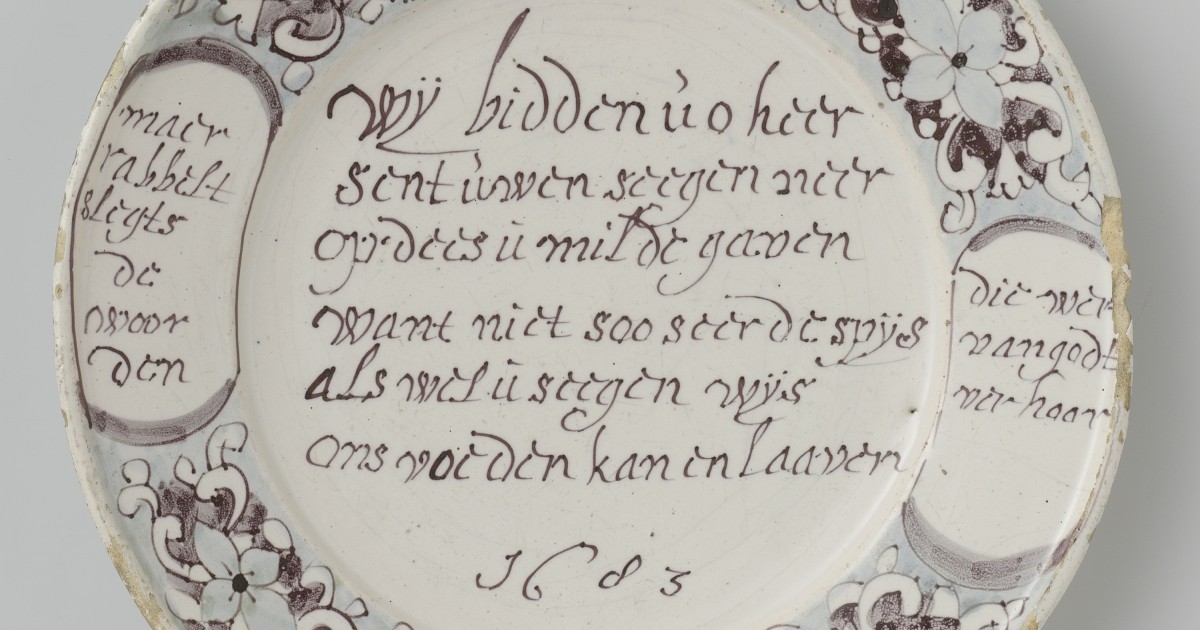 maer
rabbelt
slegts
de
woor
den
Wÿ bidden ù o heer
sent ùwen seegen neer
op dees ù milde gaven
want niet soo seer de spÿs
als wel ù seegen wÿs
ons voeden kan en laaven
1683
die wer
van godt
ver hoor